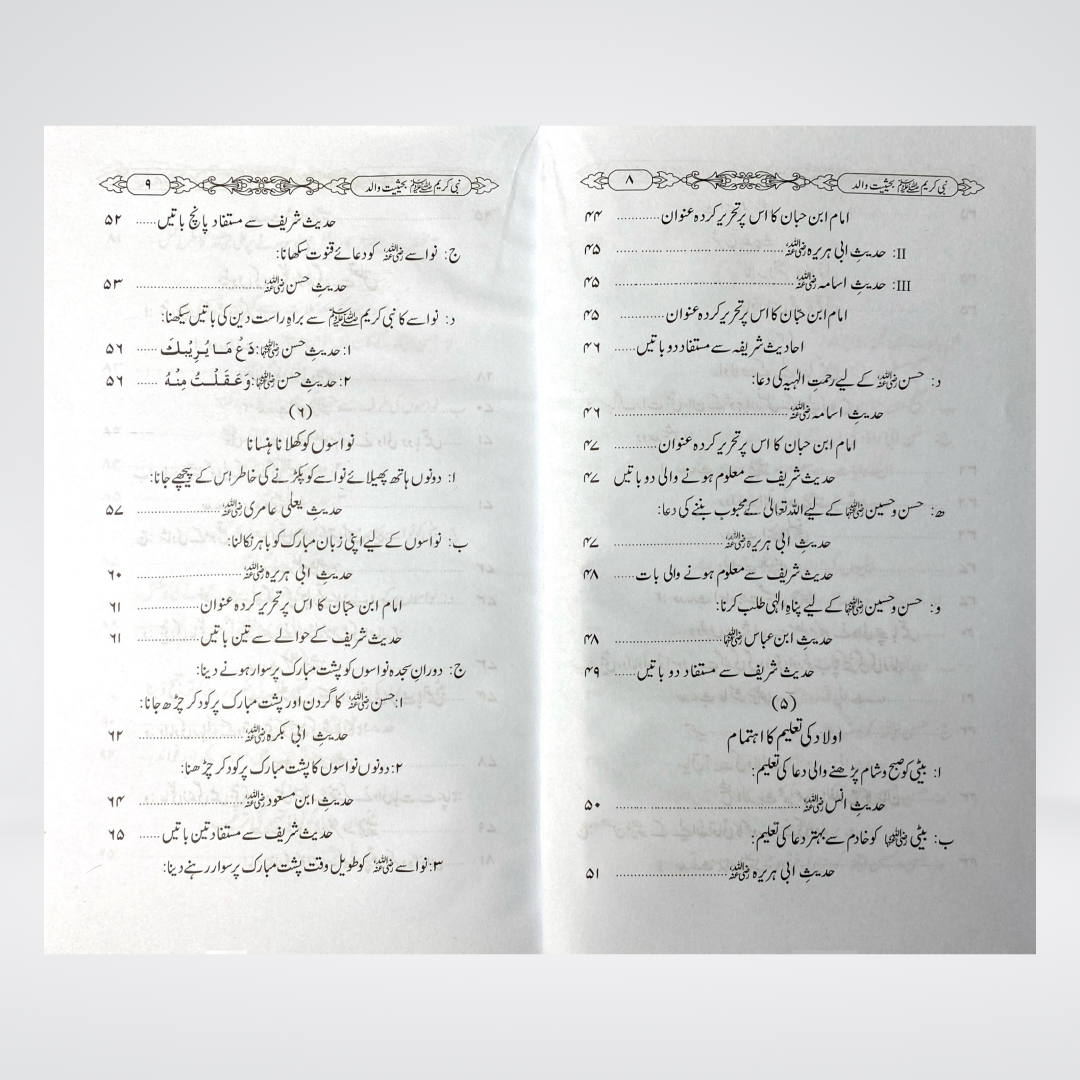 نبی کریم ﷺ بحیثیت والد ۸
امام ابن حبان کا اس پر تحریر کردہ عنوان ............ ۴۴
II: حدیثِ ابی ہریرہ رضی اللہ عنہ ............ ۴۵
III: حدیثِ اسامہ رضی اللہ عنہ ............ ۴۵
امام ابن حبّان کا اس پر تحریر کردہ عنوان ............ ۴۵
احادیث شریفہ سے مستفاد دو باتیں ...... ۴۶
د: حسن رضی اللہ عنہ کے لیے رحمتِ الٰہیہ کی دعا:
حدیثِ اسامہ رضی اللہ عنہ ............ ۴۶
امام ابن حبان کا اس پر تحریر کردہ عنوان ............ ۴۷
حدیث شریف سے معلوم ہونے والی دو باتیں ۴۷
ھ: حسن و حسین رضی اللہ عنہما کے لیے اللہ تعالیٰ کے محبوب بننے کی دعا:
حدیثِ ابی ہریرہ رضی اللہ عنہ ............ ۴۷
حدیث شریف سے معلوم ہونے والی بات ...... ۴۸
و: حسن و حسین رضی اللہ عنہما کے لیے پناہِ الٰہی طلب کرنا:
حدیثِ ابن عباس رضی اللہ عنہما ............ ۴۸
حدیث شریف سے مستفاد دو باتیں ...... ۴۹
(۵)
اولاد کی تعلیم کا اہتمام
ا: بیٹی کو صبح و شام پڑھنے والی دعا کی تعلیم:
حدیثِ انس رضی اللہ عنہ ............ ۵۰
ب: بیٹی رضی اللہ عنہا کو خادم سے بہتر دعا کی تعلیم:
حدیثِ ابی ہریرہ رضی اللہ عنہ ............ ۵۱
نبی کریم ﷺ بحیثیت والد ۹
حدیث شریف سے مستفاد پانچ باتیں ...... ۵۲
ج: نواسے رضی اللہ عنہ کو دعائے قنوت سکھانا:
حدیثِ حسن رضی اللہ عنہ ............ ۵۳
د: نواسے کا نبی کریم ﷺ سے براہِ راست دین کی باتیں سیکھنا:
۱: حدیثِ حسن رضی اللہ عنہما: دَعْ مَا يُرِيْبُكَ ...... ۵۶
۲: حدیثِ حسن رضی اللہ عنہما: وَعَقَلْتُ مِنْهُ ...... ۵۶
(۶)
نواسوں کو کھلانا ہنسانا
ا: دونوں ہاتھ پھیلائے نواسے کو پکڑنے کی خاطر اس کے پیچھے جانا:
حدیثِ یعلی عامری رضی اللہ عنہ ............ ۵۷
ب: نواسوں کے لیے اپنی زبان مبارک کو باہر نکالنا:
حدیثِ ابی ہریرہ رضی اللہ عنہ ............ ۶۰
امام ابن حبّان کا اس پر تحریر کردہ عنوان ............ ۶۱
حدیث شریف کے حوالے سے تین باتیں ............ ۶۱
ج: دورانِ سجدہ نواسوں کو پشت مبارک پر سوار ہونے دینا:
۱: حسن رضی اللہ عنہ کا گردن اور پشت مبارک پر کود کر چڑھ جانا:
حدیثِ ابی بکرہ رضی اللہ عنہ ............ ۶۲
۲: دونوں نواسوں کا پشت مبارک پر کود کر چڑھنا:
حدیثِ ابن مسعود رضی اللہ عنہ ............ ۶۴
حدیث شریف سے مستفاد تین باتیں ...... ۶۵
۳: نواسے رضی اللہ عنہ کو طویل وقت پشت مبارک پر سوار رہنے دینا: